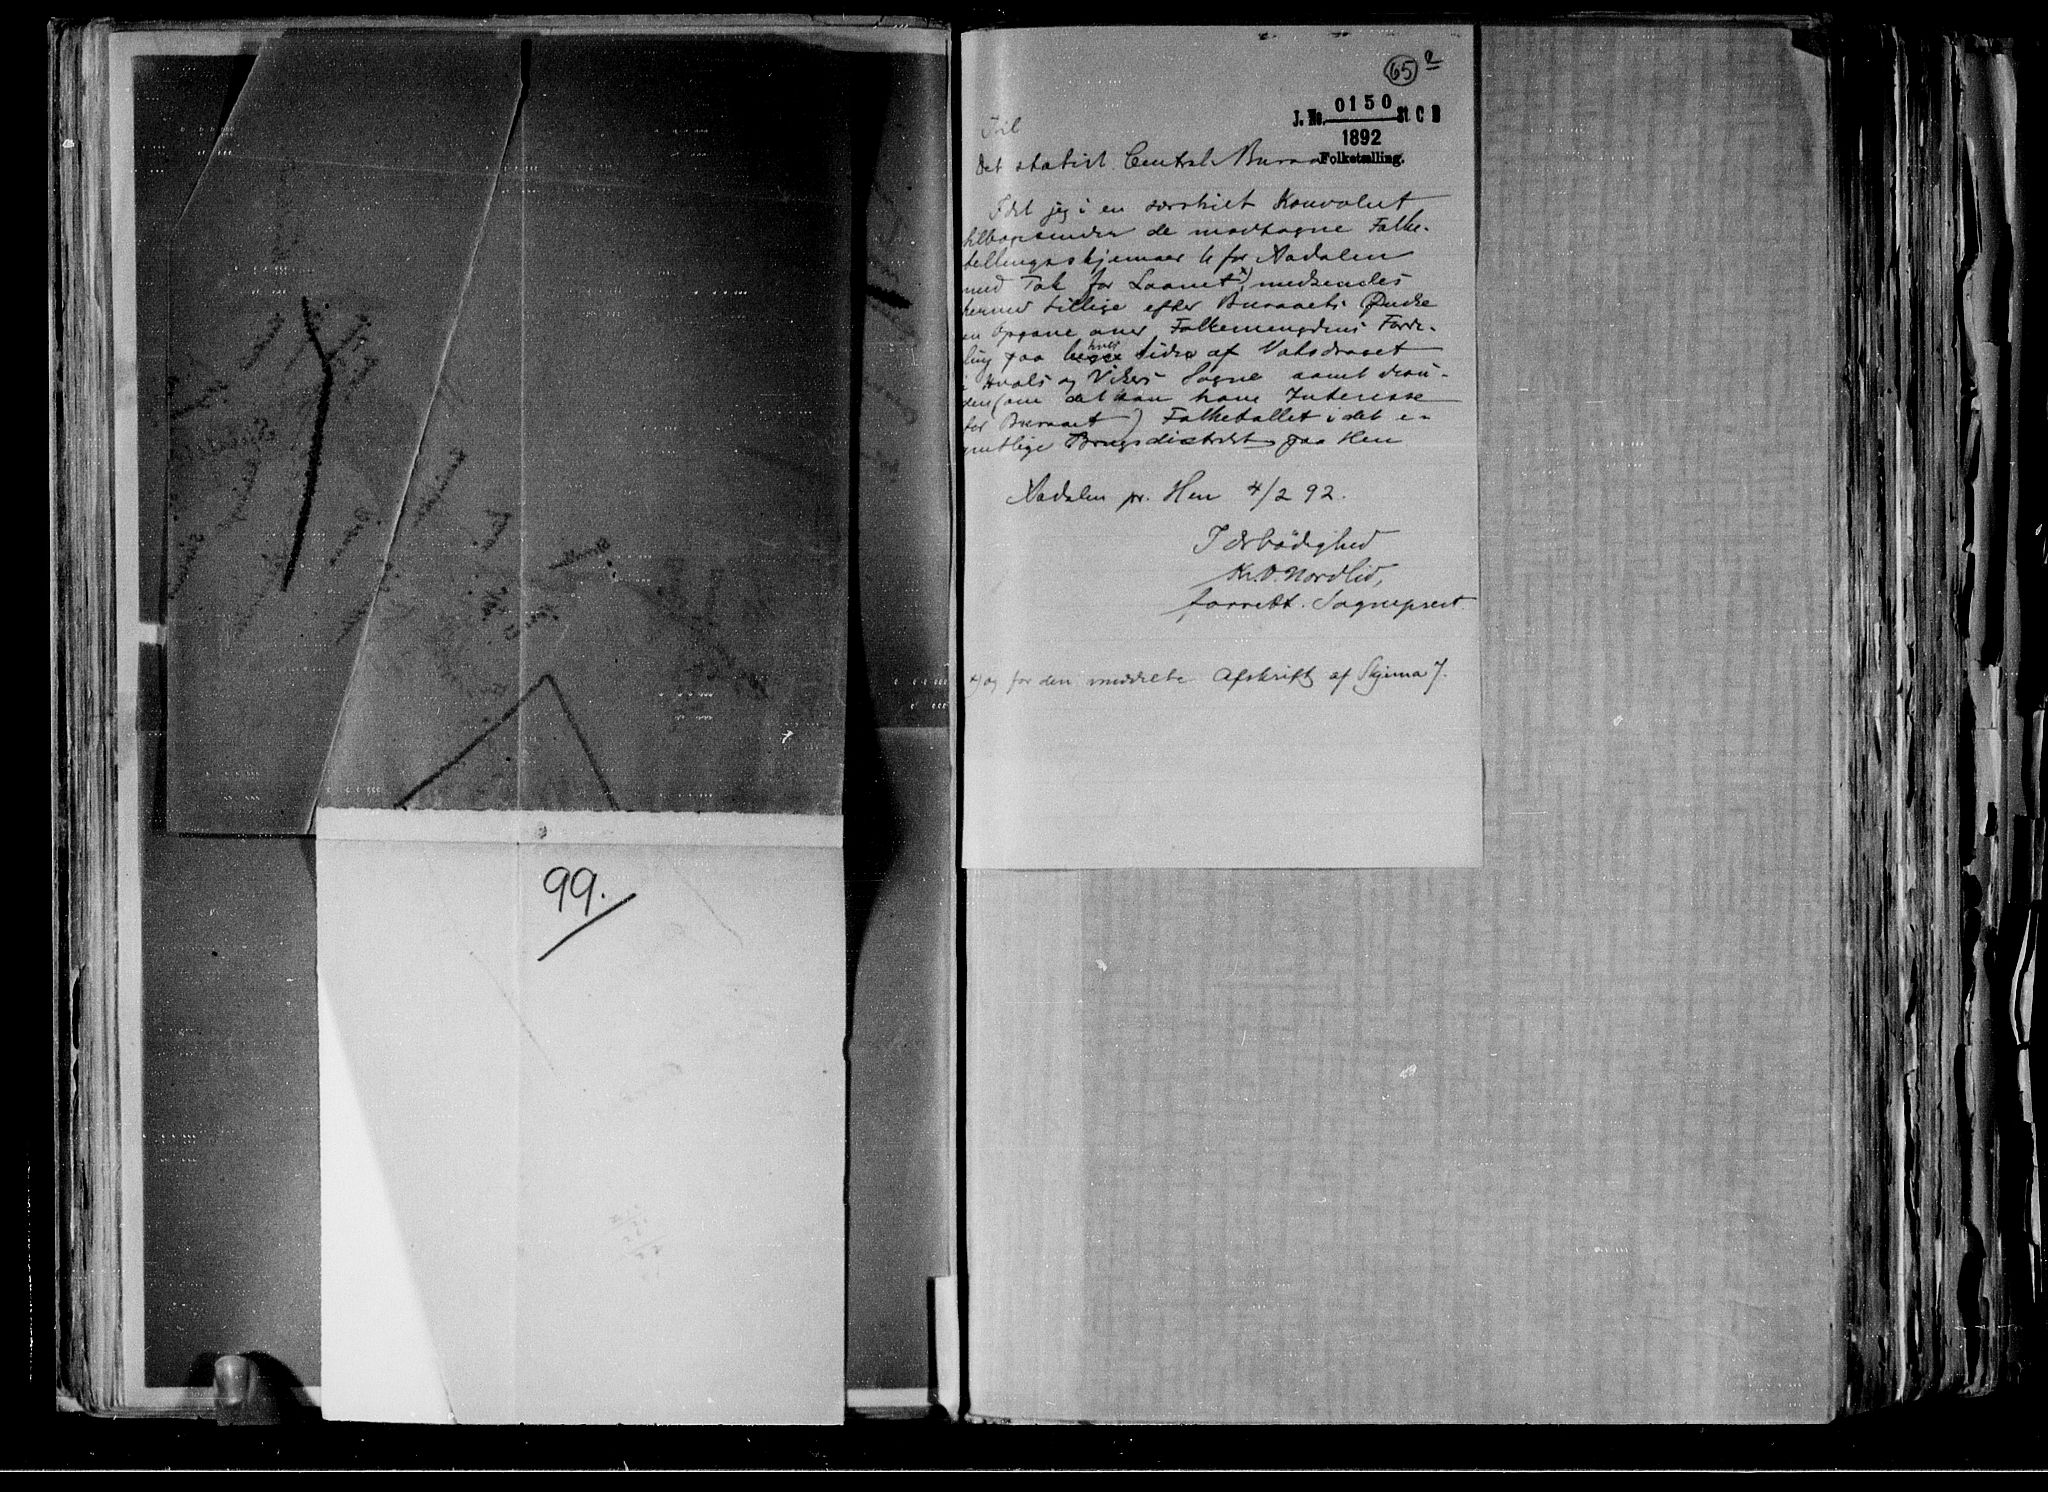 99.
65 a
J. No. 0150 St C B
1892
Folketælling.
Til
Det statist. Central-Bureau
Idet jeg i en særskilt Konvolut
tilbagesender de modtagne Folke-
tellingsskjemaer 4 for Aadalen
med Tak for Laanet x), medsendes
herved tillige efter Bureaets Ønske
en Opgave over Folkemengdens Forde-
ling paa hver Side af Vatsdraget
i Hvals og Vikers Sogne samt
den (om det kan have Interesse
for Bureaet) Folketallet i det e-
gentlige Brugsdistrikt paa Hen
Aadalen pr. Hen 4/2 92.
I Ærbødighed
Kr. O. Nordlid,
forrett. Sogneprest
x) og for den meddelte Afskrift af Skjema 7.